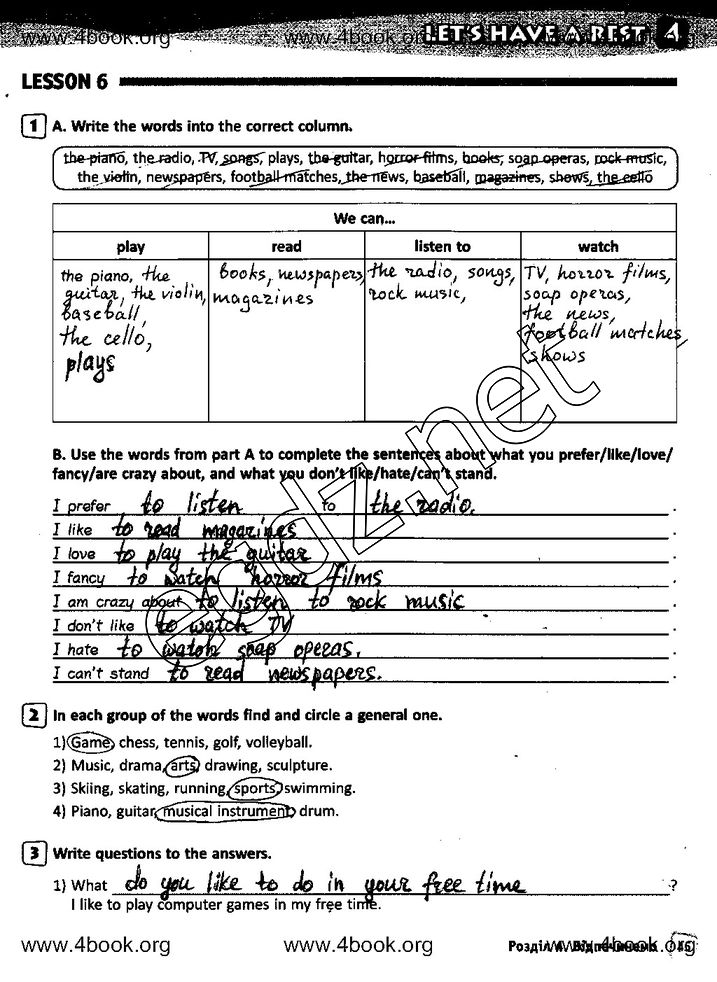 www.4book.org www.4book.org LET'S HAVE A REST 4
LESSON 6
1 A. Write the words into the correct column.
the piano, the radio, TV, songs, plays, the guitar, horror films, books, soap operas, rock music,
the violin, newspapers, football matches, the news, baseball, magazines, shows, the cello
We can...
play read listen to watch
the piano, the books, newspapers, the radio, songs, TV, horror films,
guitar, the violin, magazines rock music, soap operas,
baseball, the news,
the cello, football matches,
plays shows
B. Use the words from part A to complete the sentences about what you prefer/like/love/
fancy/are crazy about, and what you don't like/hate/can't stand.
I prefer to listen to the radio. .
I like to read magazines .
I love to play the guitar .
I fancy to watch horror films .
I am crazy about to listen to rock music .
I don't like to watch TV .
I hate to watch soap operas. .
I can't stand to read newspapers. .
egdz.net
2 In each group of the words find and circle a general one.
1) Game, chess, tennis, golf, volleyball.
2) Music, drama, arts, drawing, sculpture.
3) Skiing, skating, running, sports, swimming.
4) Piano, guitar, musical instrument, drum.
3 Write questions to the answers.
1) What do you like to do in your free time ?
I like to play computer games in my free time.
www.4book.org www.4book.org Розділ 4. www.4book.org